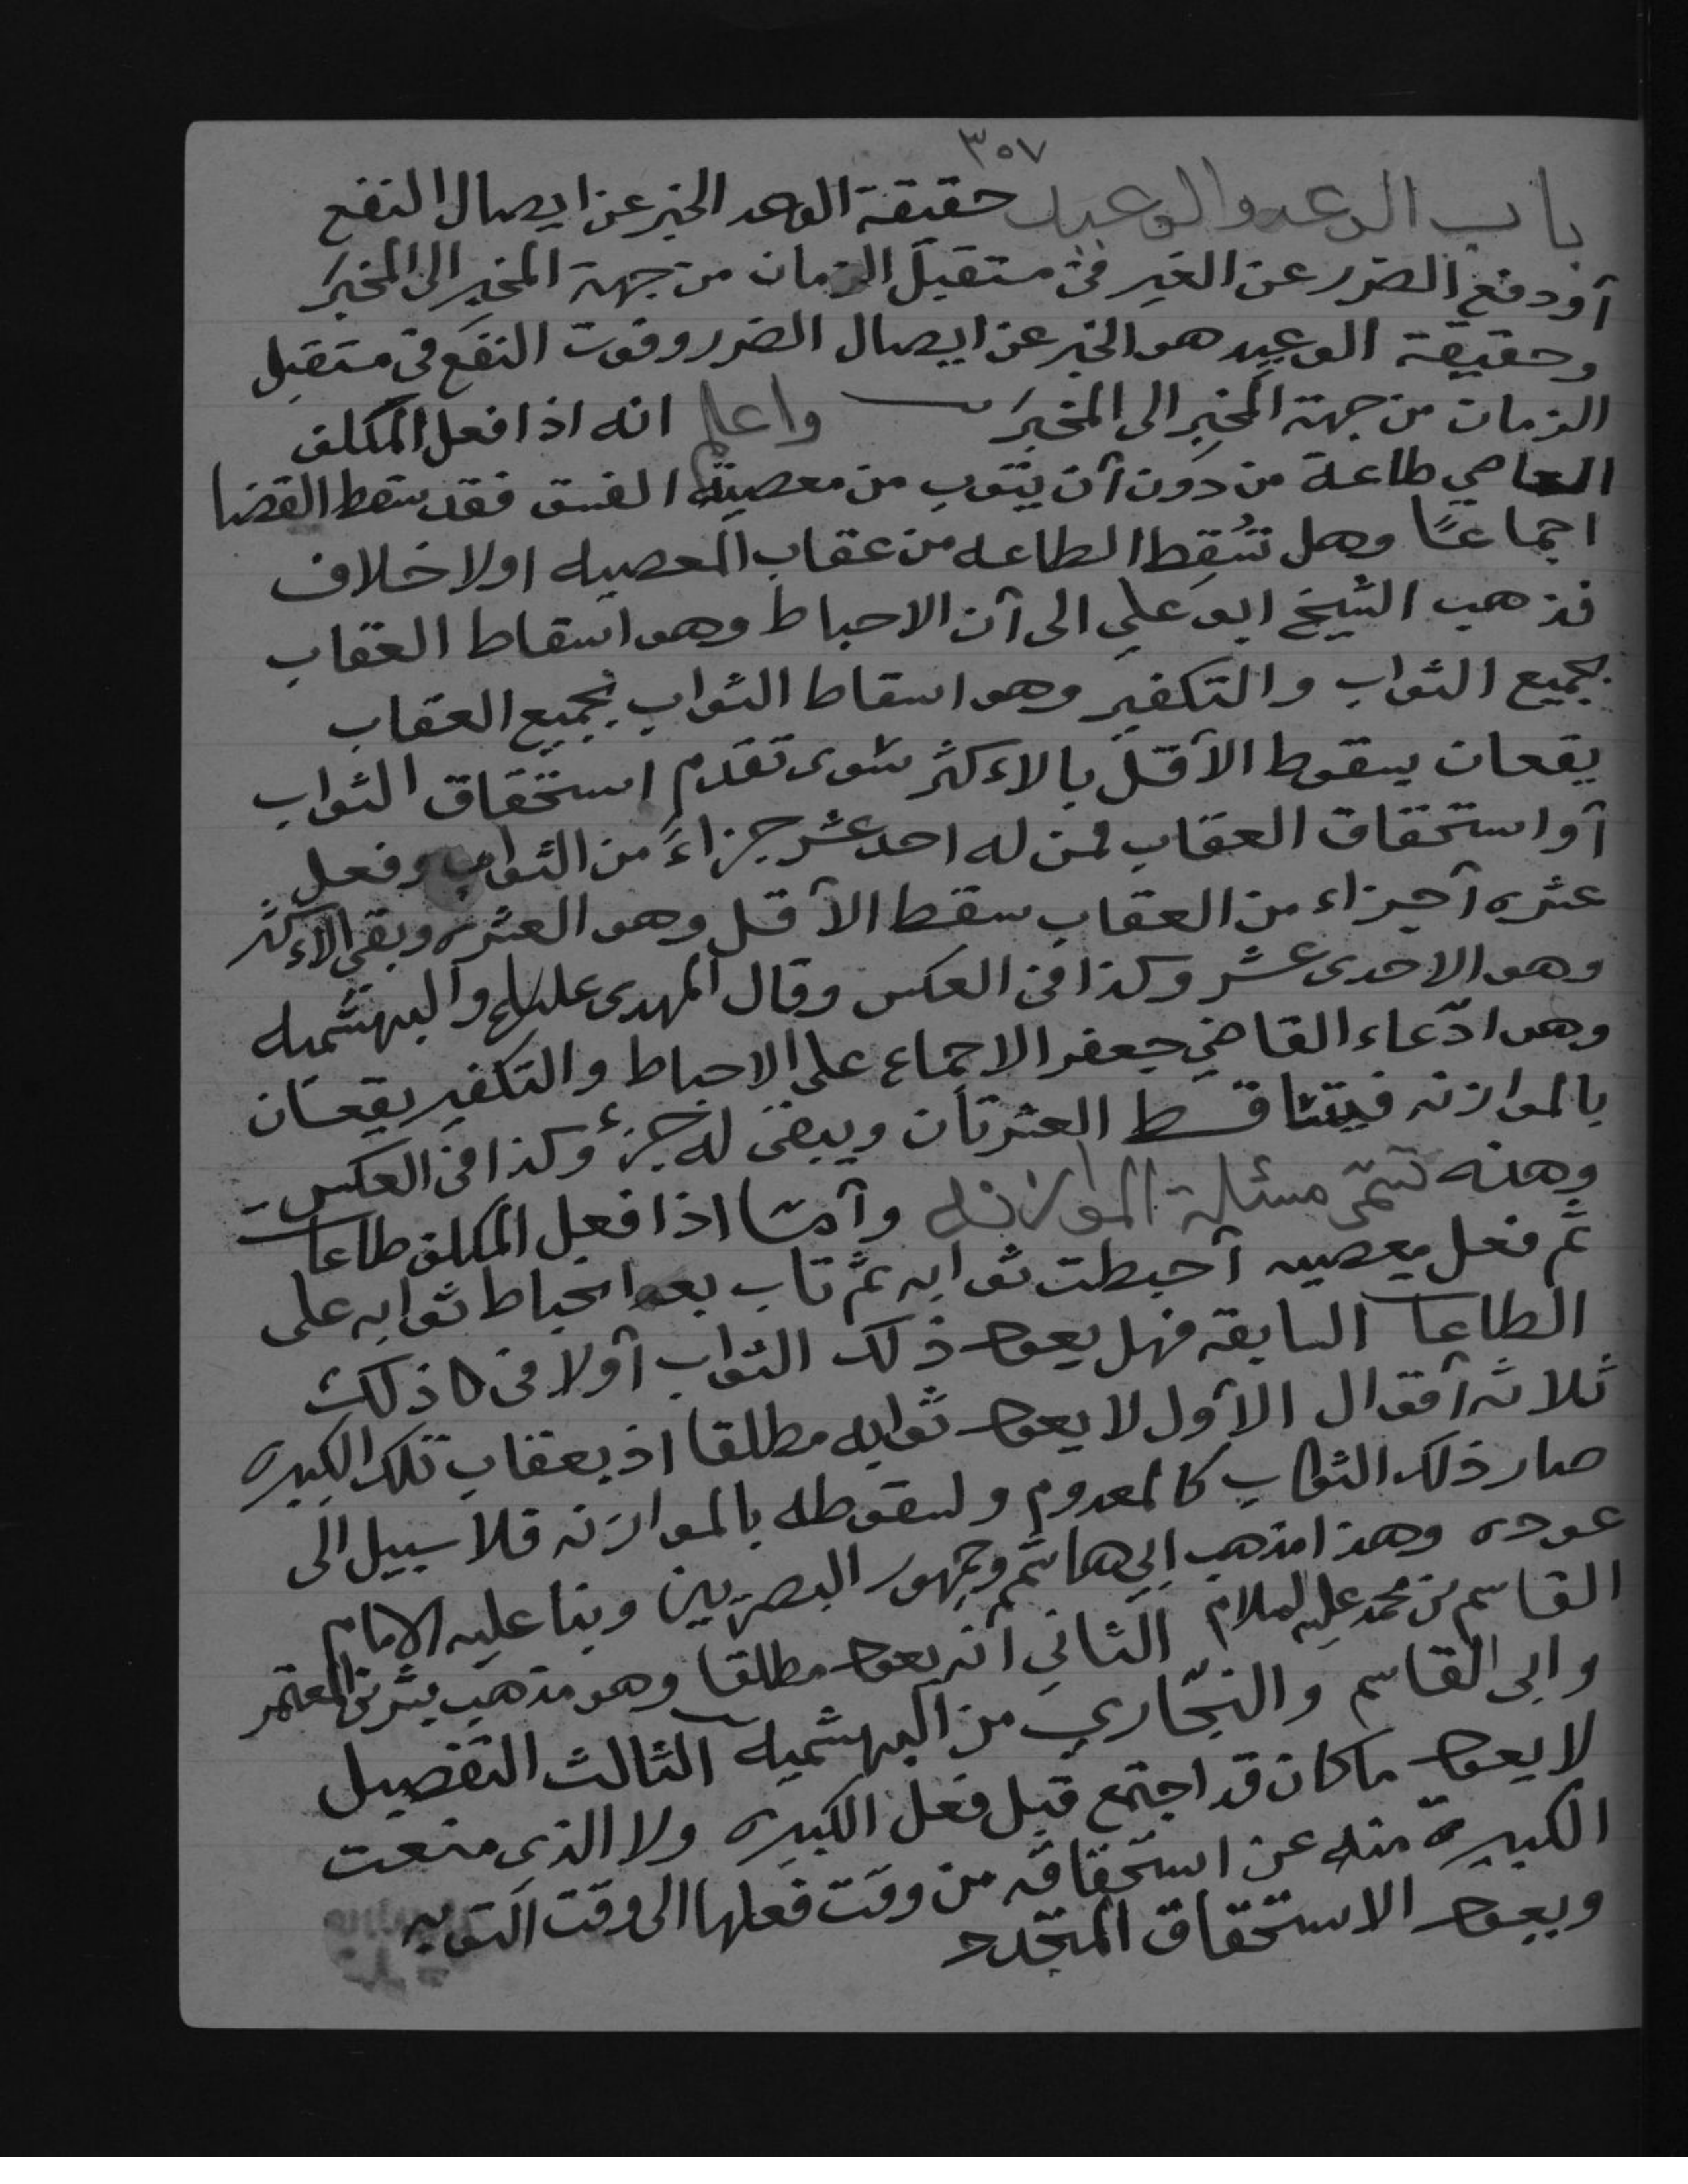 ٣٥٧
باب الوعد والوعيد حقيقة الوعد الخبر عن ايصال النفع
أو دفع الضرر عن الغير في مستقبل الزمان من جهة المخبِر الى المخبَر
وحقيقة الوعيد هو الخبر عن ايصال الضرر وفوت النفع في مستقبل
الزمان من جهة المخبِر الى المخبَر واعلم انه اذا فعل المكلف
العاصي طاعة من دون أن يتوب من معصية الفسق فقد سقط القضا
اجماعًا وهل تُسْقِط الطاعه من عقاب المعصيه اولا خلاف
فذهب الشيخ ابو علي الى أن الاحباط وهو اسقاط العقاب
بجميع الثواب والتكفير وهو اسقاط الثواب بجميع العقاب
يقعان بسقوط الأقل بالاءكثر سوى تقدم استحقاق الثواب
أو استحقاق العقاب فمن له احد عشر جزاءً من الثواب وفعل
عشره أجزاء من العقاب سقط الأقل وهو العشره وبقى الاءكثر
وهو الاحدى عشر وكذا في العكس وقال المهدى عليلم والبهشميه
وهو ادّعاء القاضي جعفر الاجماع على الاحباط والتكفير يقعان
بالموازنه فيتساقط العشرتان ويبقى له جزءٌ وكذا في العكس
وهذه تسمّى مسئلة الموازنه وأمّا اذا فعل المكلف طاعات
ثم فعل معصيه أحبطت ثوابه ثم تاب بعد انحباط ثوابه على
الطاعات السابقة فهل يعود ذلك الثواب أولا في ذلك
ثلاثه أقوال الأول لا يعود ثوابه مطلقا اذ بعقاب تلك الكبيره
صار ذلك الثواب كالمعدوم ولسقوطه بالموازنه فلا سبيل الى
عوده وهذا مذهب ابي هاشم وجمهور البصريين وبنا عليه الامام
القاسم بن محمد عليه السلام الثاني أنه يعود مطلقا وهو مذهب بشر بن المعتمر
وابى القاسم والنجّاري من البهشميه الثالث التفصيل
لا يعود ما كان قد اجتمع قبل فعل الكبيره ولا الذى منعت
الكبيرة منه عن استحقاقه من وقت فعلها الى وقت التوبه
ويعود الاستحقاق المتجدد